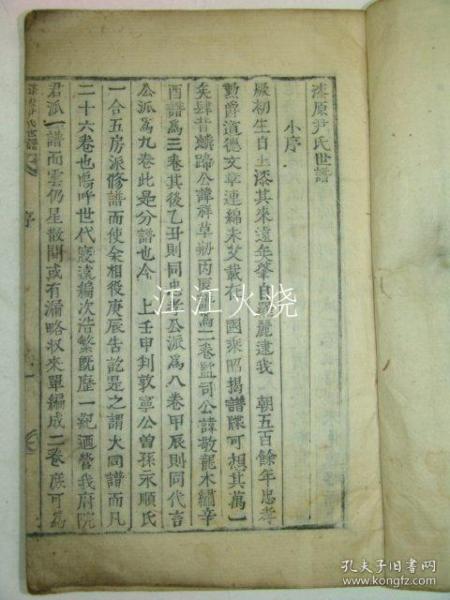 漆原尹氏世譜
小序
厥初生自土漆其來遠年肇自羅麗逮我 朝五百餘年忠孝
勳爵道德文章連綿未艾載在 國乘昭揭譜牒可想其萬一
矣肆昔 公諱 草剏丙辰 爲二卷監司公諱敬龍木繡辛
酉譜爲三卷其後乙丑則同忠孝公派爲八卷甲辰則同代言
公派爲九卷此是分譜也今 上壬申判敦寧公曾孫永順氏
一合五房派修譜而使余相役庚辰告訖是之謂大同譜而凡
二十六卷也嗚呼世代寖遠編次浩繁旣歷一紀迺營我府院
君派一譜而雲仍星散間或有漏略收來單編成二卷庶可爲
序
江江火烧
孔夫子旧书网
www.kongfz.com